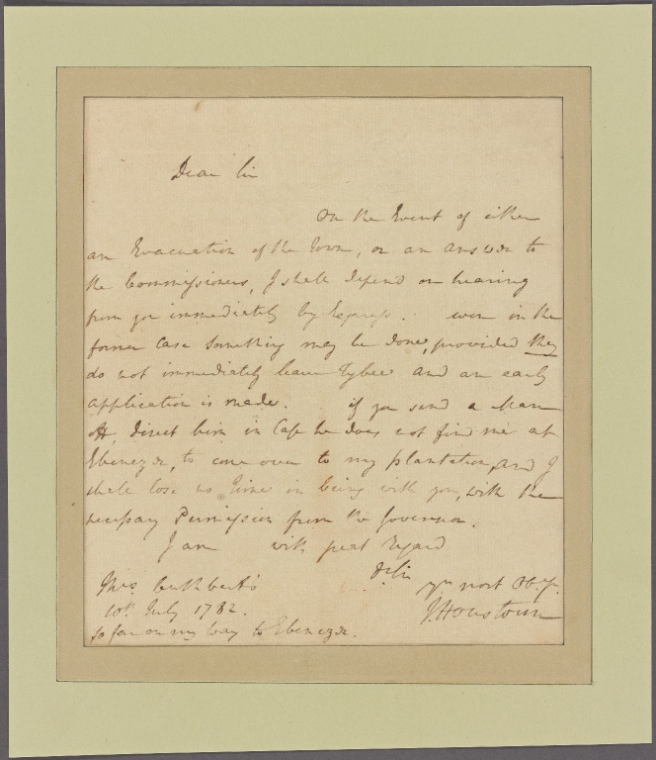 Dear Sir
On the Event of either
an Evacuation of the Town, or an answer to
the Commissioners, I shall depend on hearing
from you immediately by Express. even in the
former Case Something may be done, provided they
do not immediately leave Tybee and an early
application is made. if you send a Man
off, direct him in Case he does not find me at
Ebenezer, to come over to my plantation, and I
shall lose no time in being with you, with the
necessary Permission from the Governor.
I am with great Regard
Dr Sir
yr most Obt
J. Houstoun
Mrs Cuthbert's
10th July 1782.
so far on my way to Ebenezer.